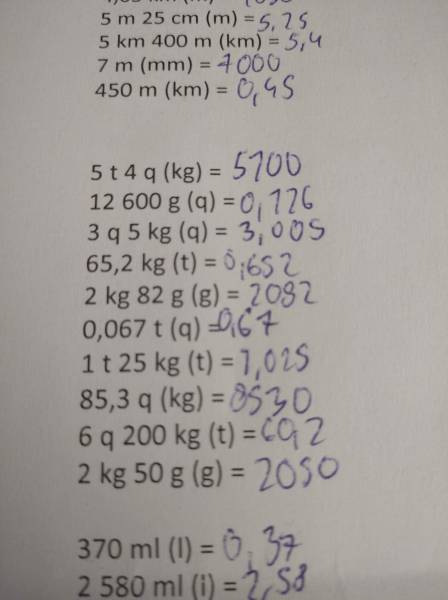 5 m 25 cm (m) = 5,25
5 km 400 m (km) = 5,4
7 m (mm) = 7000
450 m (km) = 0,45
5 t 4 q (kg) = 5700
12 600 g (q) = 0,126
3 q 5 kg (q) = 3,005
65,2 kg (t) = 0,652
2 kg 82 g (g) = 2082
0,067 t (q) = 0,67
1 t 25 kg (t) = 1,025
85,3 q (kg) = 8530
6 q 200 kg (t) = 60,2
2 kg 50 g (g) = 2050
370 ml (l) = 0,37
2 580 ml (i) = 2,58